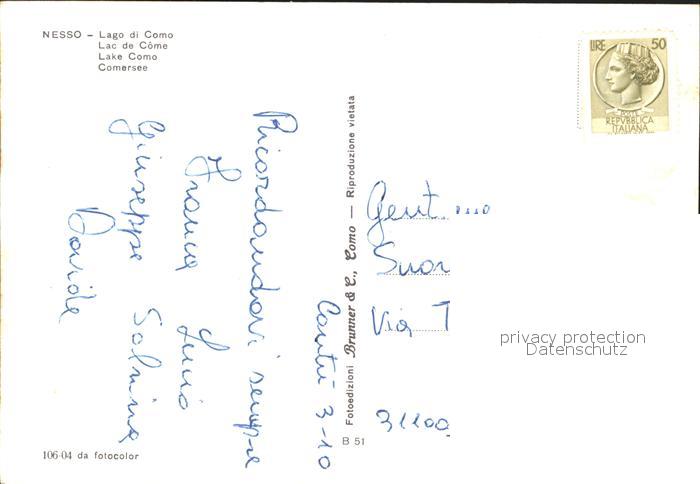 NESSO – Lago di Como
Lac de Côme
Lake Como
Comersee
LIRE 50
POSTE
REPVBBLICA
ITALIANA
Cantù 3-10
Ricordandovi sempre
Franca Lucio
Giuseppe Salvina
Davide
Fotoedizioni Brunner & C., Como — Riproduzione vietata
Gent.
Suor
Via T
31100
privacy protection
Datenschutz
B 51
106-04 da fotocolor